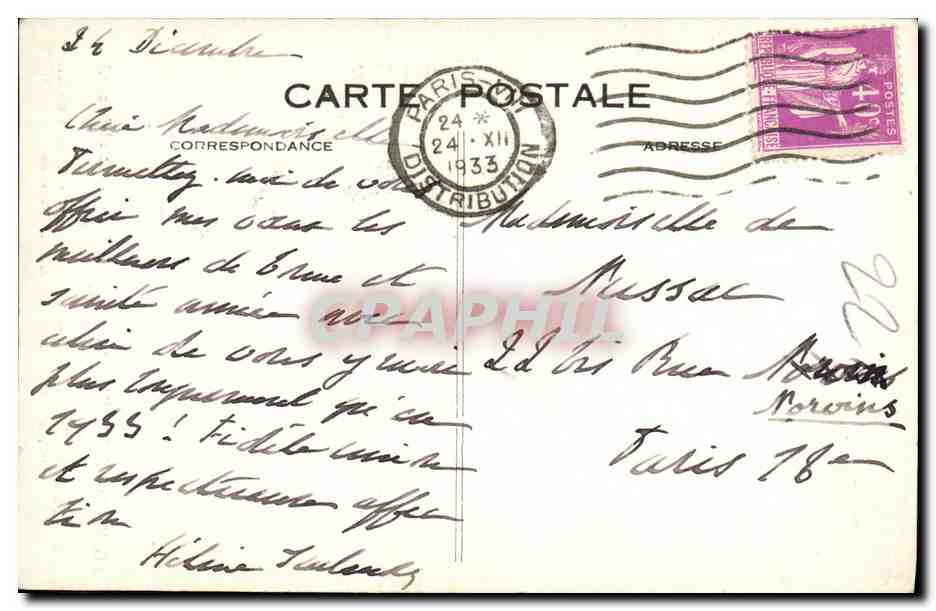 24 Décembre
CARTE POSTALE
CORRESPONDANCE
ADRESSE
PARIS-VI
24 *
24 · XII
1933
DISTRIBUTION
REPUBLIQUE FRANÇAISE
40c
POSTES
Chère Mademoiselle
Permettez-moi de vous
offrir mes vœux les
meilleurs de bonne et
sainte année avec
celui de vous y voir
plus longuement qu'en
1933! Fidèle
et respectueuse affec
tion
Hélène
Mademoiselle de
Nussac
22 bis Rue Norvins
Norvins
Paris 18e
22
CPAPHIL